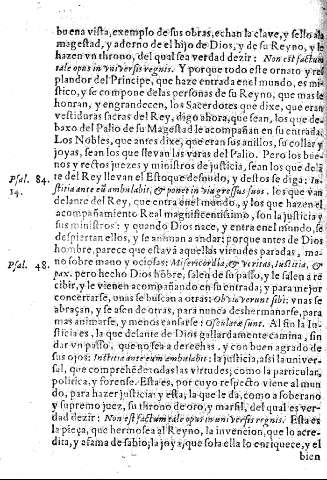 buena vista, exemplo de sus obras, echan la clave, y sello a la
magestad, y adorno de el hijo de Dios, y de su Reyno, y le
hazen vn throno, del qual sea verdad dezir: Non est factum
tale opus in vniversis regnis. Y porque todo este ornato y res
plandor del Principe, que haze entrada en el mundo, es mi-
stico, y se compone de las personas de su Reyno, que mas le
honran, y engrandecen, los Sacerdotes que dixe, que eran
vestiduras sacras del Rey, digo ahora, que sean, los que de-
baxo del Palio de su Magestad le acompañan en su entrada.
Los Nobles, que antes dixe, que eran sus anillos, su collar y
joyas, sean los que llevan las varas del Palio. Pero los bue-
nos y rectos juezes y ministros de justicia, sean los que delã
Psal. 84. te del Rey llevan el Estoque desnudo, y destos se diga: Iu-
14. stitia ante eũ ambulabit, & ponet in via gressus suos. los que van
delante del Rey, que entra en el mundo, y los que hazen el
acompañamiento Real magnificentissimo, son la justicia y
sus ministros: y quando Dios nace, y entra en el mundo, se
despiertan ellos, y se animan a andar; porque antes de Dios
hombre, parece que estavã aquellas virtudes paradas, ma-
Psal. 48. no sobre mano y ociosas: Misericordia, & veritas, iustitia, &
pax. pero hecho Dios hõbre, salen de su passo, y le salen a re
cibir, y le vienen acompañando en su entrada; y para mejor
concertarse, unas se buscan a otras: Obviaverunt sibi: vnas se
abraçan, y se asen de otras, para nunca deshermanarse, para
mas animarse, y menos cansarse: Osculatæ sunt. Al fin la Iu-
sticia es, la que delante de Dios gallardamente camina, sin
dar vn passo, que no sea a derechas, y con buen agrado de
sus ojos: Iustitia ante eum ambulabit: la justicia, assi la univer-
sal, que comprehẽde todas las virtudes; como la particular,
politica, y forense. Esta es, por cuyo respecto viene al mun
do, para hazer justicia: y esta, la que le da, como a soberano
y supremo juez, su throno de oro, y marfil, del qual es ver-
dad dezir: Non est factum tale opus in universis regnis. Esta es
la pieça, que hermosea al Reyno, la invencion, que lo acre-
dita, y afama de sabio; la joya, que sola ella lo enriquece, y el
bien